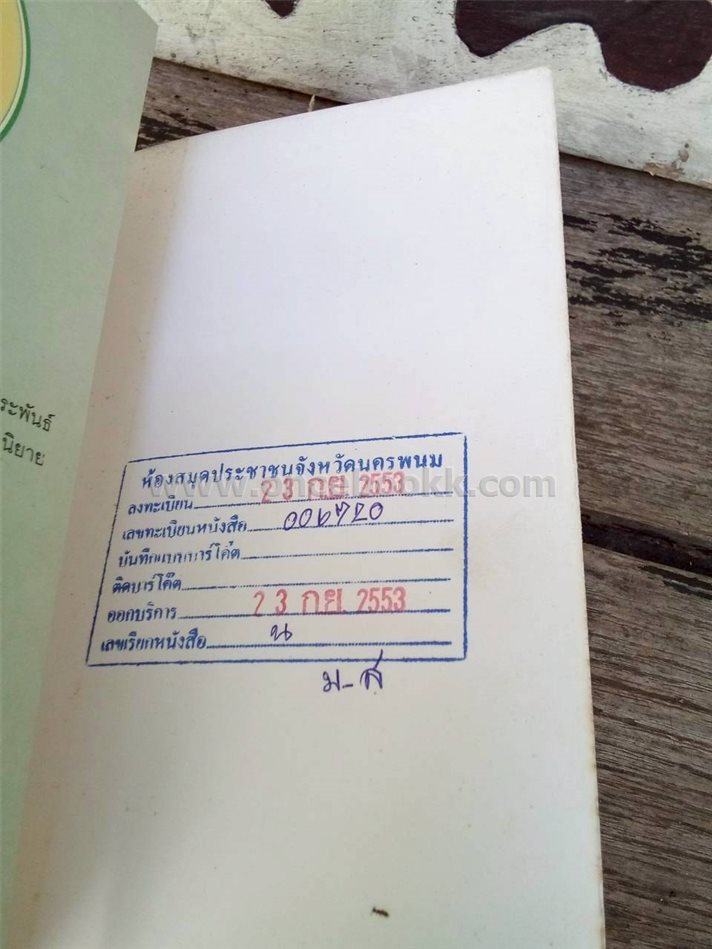 ระพันธ์
นิยาย
ห้องสมุดประชาชนจังหวัดนครพนม
ลงทะเบียน 23 ก.ย. 2553
เลขทะเบียนหนังสือ
บันทึกแบบบาร์โค้ด
ติดบาร์โค๊ด
ออกบริการ 23 ก.ย. 2553
เลขเรียกหนังสือ น
ม-ส